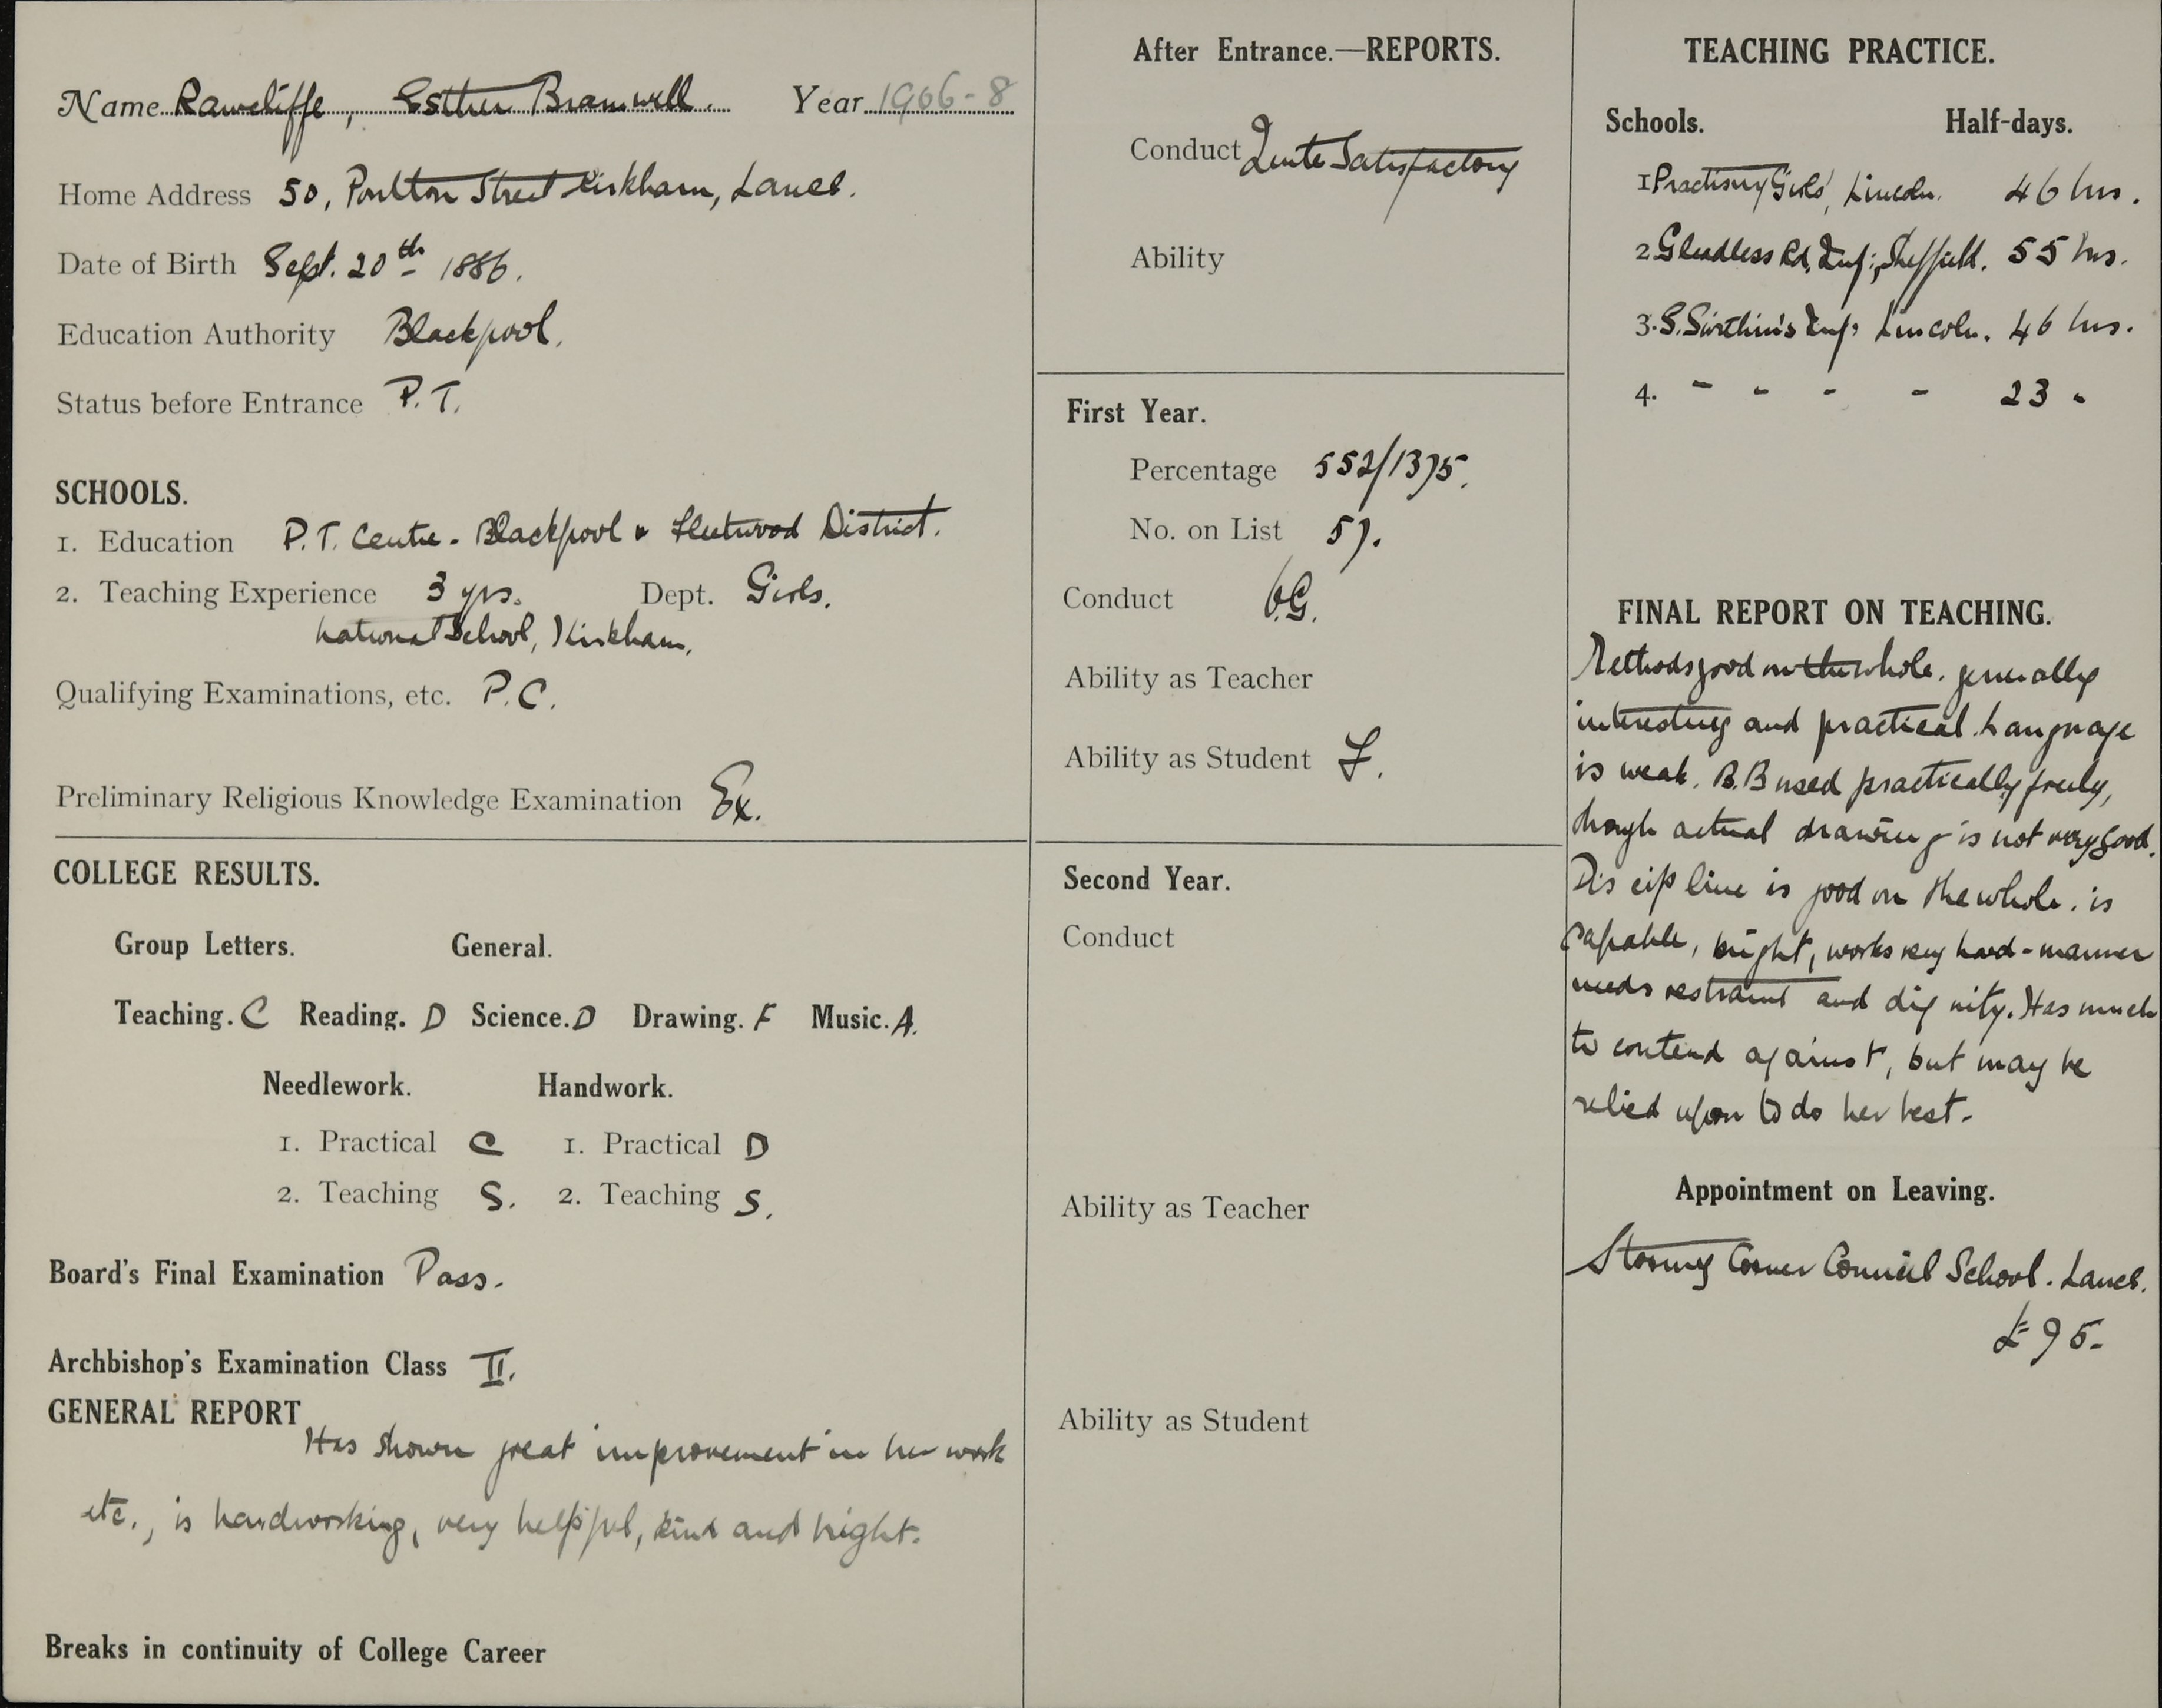 Name Rawcliffe, Esther Bramwell. Year 1906-8
Home Address 50, Poulton Street Kirkham, Lancs.
Date of Birth Sept. 20th 1886.
Education Authority Blackpool.
Status before Entrance P.T.
SCHOOLS.
1. Education P.T. Centre - Blackpool & Fleetwood District.
2. Teaching Experience 3 yrs. Dept. Girls.
National School, Kirkham.
Qualifying Examinations, etc. P.C.
Preliminary Religious Knowledge Examination Ex.
COLLEGE RESULTS.
Group Letters. General.
Teaching. C Reading. D Science. D Drawing. F Music. A.
Needlework. Handwork.
1. Practical C 1. Practical D
2. Teaching S. 2. Teaching S.
Board's Final Examination Pass.
Archbishop's Examination Class II.
GENERAL REPORT
Has shown great improvement in her work
etc., is hardworking, very helpful, kind and bright.
Breaks in continuity of College Career
After Entrance.—REPORTS.
Conduct Quite Satisfactory
Ability
First Year.
Percentage 552/1375.
No. on List 57.
Conduct V.G.
Ability as Teacher
Ability as Student F.
Second Year.
Conduct
Ability as Teacher
Ability as Student
TEACHING PRACTICE.
Schools. Half-days.
1 Practising Girls', Lincoln. 46 hrs.
2 Gleadless Rd, Inf:, Sheffield. 55 hrs.
3. S. Swithin's Inf: Lincoln. 46 hrs.
4. - - - - 23 "
FINAL REPORT ON TEACHING.
Methods good on the whole, generally
interesting and practical. Language
is weak. B.B used practically, freely,
though actual drawing is not very good.
Discipline is good on the whole. is
capable, bright, works very hard - manner
needs restraint and dignity. Has much
to contend against, but may be
relied upon to do her best.
Appointment on Leaving.
Stormy Corner Council School. Lancs.
£95-